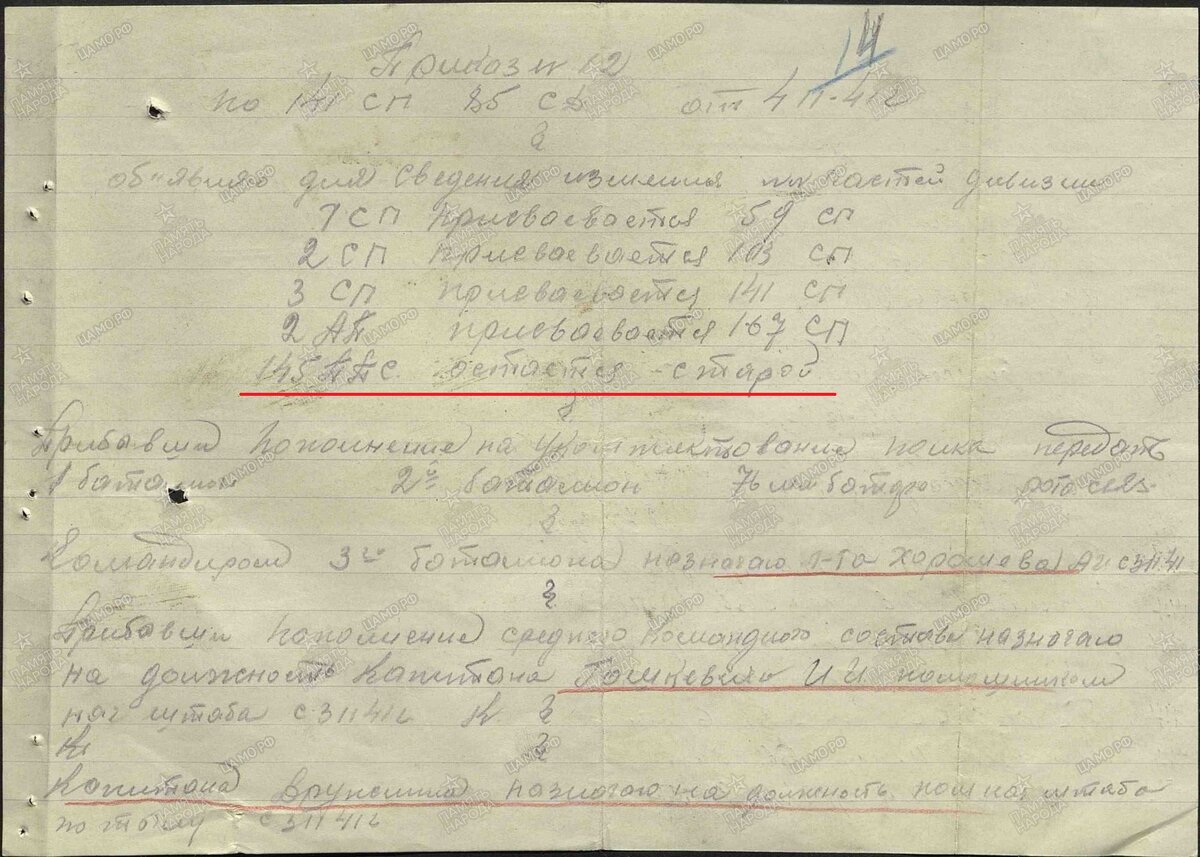 14
Приказ № 12
по 141 СП 85 СД от 4 11-41г
2
объявляю для сведения измения №№ частей дивизии
1 СП присваевается 59 СП
2 СП присваевается 103 СП
3 СП присваевается 141 СП
2 АП присваевается 167 СП
145 ППС остается старой
3
Прибавши пополнение на укомплектование полка передать
1 баталион 2й баталион 76 мм батаре рота
3
Командиром 3го баталиона назначаю л-та Хорошева АИ с 3 11 41
3
Прибавши пополнение среднего командного состава назначаю
на должность Капитана Гошкевича И И помощником
нач штаба с 3 11 41г К 3
К 3
Капитана назначаю на должность пом нач штаба
по тылу с 3 11 41г
ПАМЯТЬ НАРОДА
ЦАМО.РФ